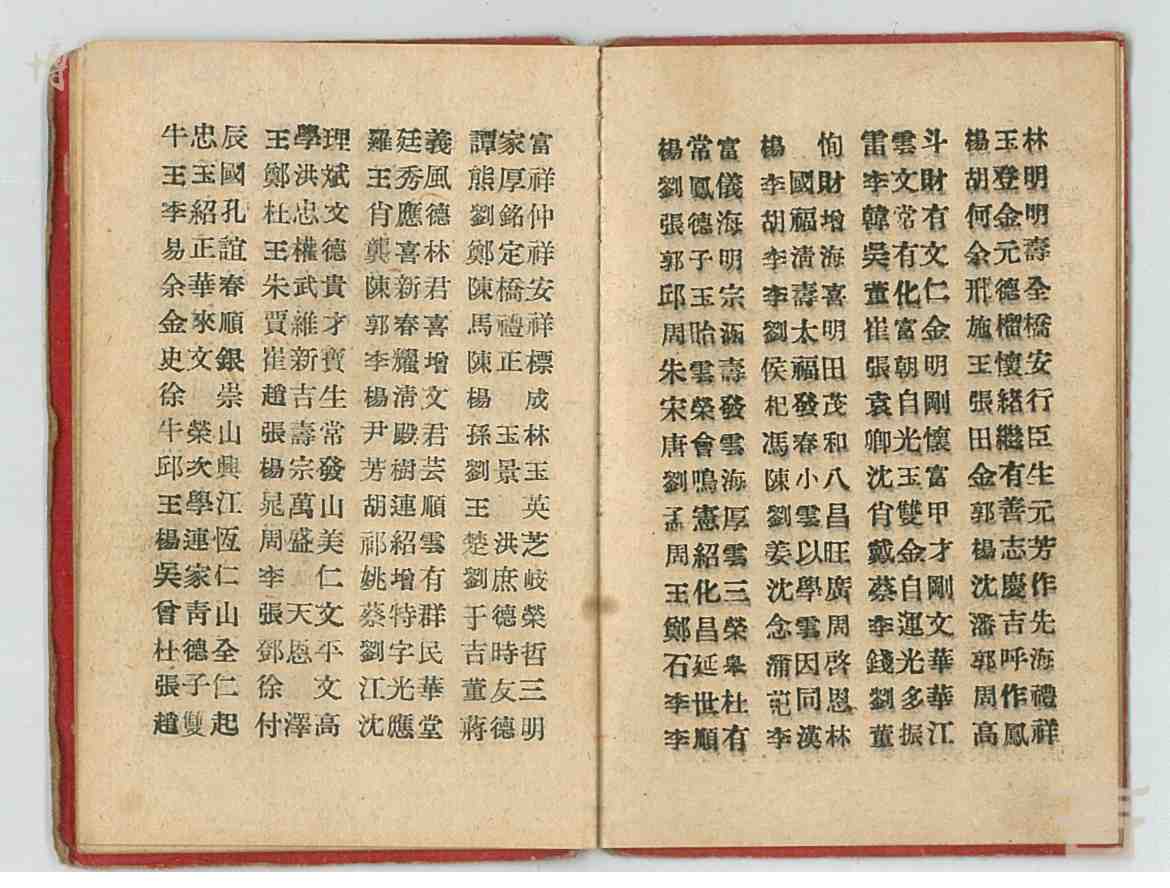 牛忠辰 王學理 羅廷義 譚家富
王玉國 鄭洪斌 王秀風 熊厚祥
李紹孔 杜忠文 肖應德 劉銘仲
易正誼 王權德 龔喜林 鄭定祥
余華春 朱武貴 陳新君 陳橋安
金來順 賈維才 郭春喜 馬禮祥
史文銀 崔新寶 李耀增 陳正標
徐崇 趙吉生 楊淸文 楊成
牛榮山 張壽常 尹殿君 孫玉林
邱次興 楊宗發 芳樹芸 劉景玉
王學江 晁萬山 胡連順 王英
楊連恆 周盛美 祁紹雲 楚洪芝
吳家仁 李仁 姚增有 劉庶岐
曾靑山 張天文 蔡特群 于德榮
杜德全 鄧恩平 劉字民 吉時哲
張子仁 徐文 江光華 董友三
趙雙起 付澤高 沈應堂 蔣德明
楊常富 楊恂 雷雲斗 楊玉林
劉鳳儀 李國財 李文財 胡登明
張德海 胡福增 韓常有 何金明
郭子明 李淸海 吳有文 余元壽
邱玉宗 李壽喜 董化仁 邢德全
周貽涵 劉太明 崔富金 施榴橋
朱雲壽 侯福田 張朝明 王懷安
宋榮發 杞發茂 袁自剛 張緒行
唐會雲 馮春和 卿光懷 田繼臣
劉鳴海 陳小八 沈玉富 金有生
孟憲厚 劉雲昌 肖雙甲 郭善元
周紹雲 姜以旺 戴金才 楊志芳
王化三 沈學廣 蔡自剛 沈慶作
鄭昌榮 念雲周 李運文 潘吉先
石延皋 蒲因啓 錢光華 郭呼海
李世杜 范同恩 劉多華 周作禮
李順有 李漢林 董振江 高鳳祥